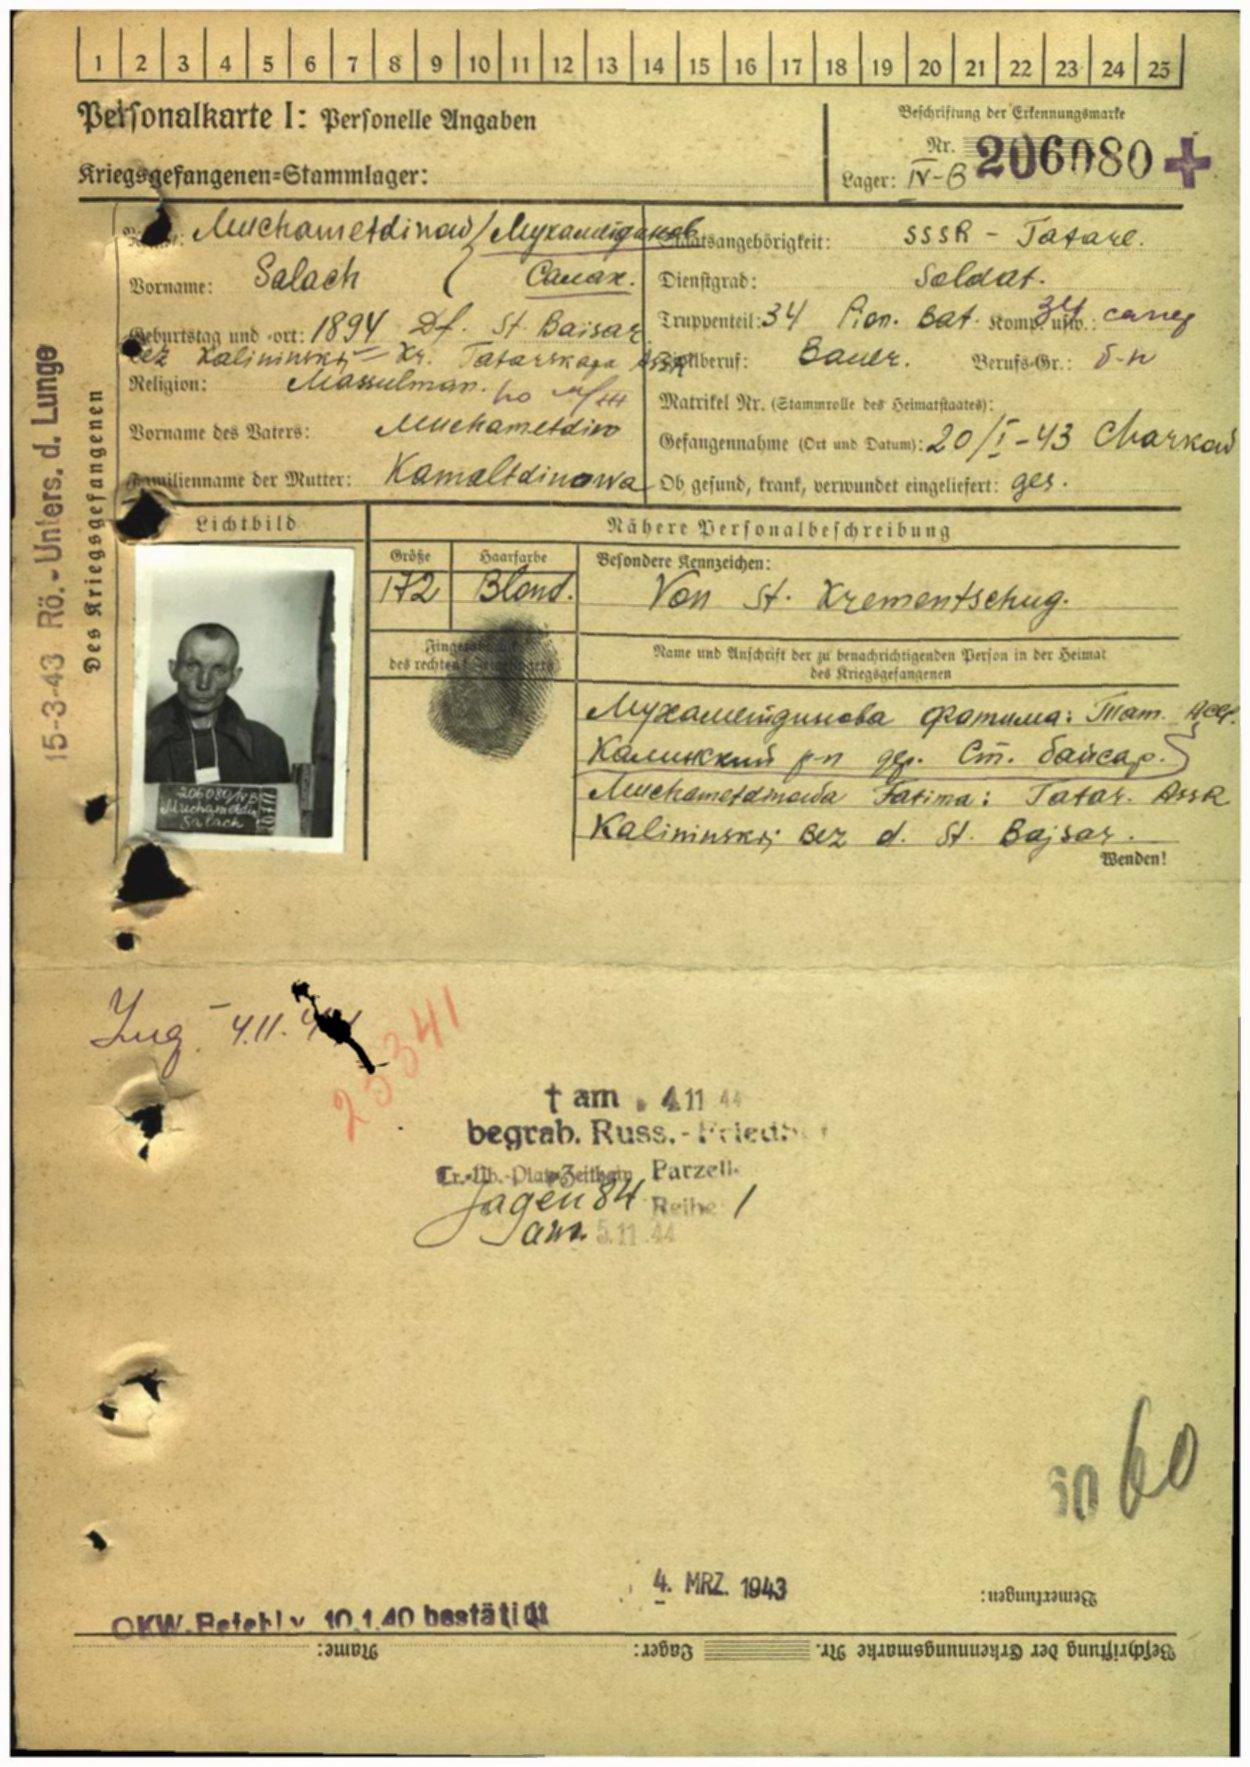 1 2 3 4 5 6 7 8 9 10 11 12 13 14 15 16 17 18 19 20 21 22 23 24 25
Personalkarte I: Personelle Angaben
Kriegsgefangenen=Stammlager:
Beschriftung der Erkennungsmarke
Nr. 206080 +
Lager: IV-B
15-3-43 Rö.-Unters. d. Lunge
Des Kriegsgefangenen
Muchametdinow
Vorname: Salach Салах.
Geburtstag und -ort: 1894 Df. St. Baisar
Bez Kalininski Kr. Tatarskaja ASSR
Religion: Massulman.
Vorname des Vaters: Muchametdin
Familienname der Mutter: Kamaltdinowa
Staatsangehörigkeit: SSSR - Tatare.
Dienstgrad: Soldat.
Truppenteil: 34 Pion. Bat. Komp. usw.: 34 сапер
Zivilberuf: Bauer. Berufs-Gr.: б-н
Matrikel Nr. (Stammrolle des Heimatstaates):
Gefangennahme (Ort und Datum): 20/I-43 Charkow
Ob gesund, krank, verwundet eingeliefert: ges.
Lichtbild
206080/IVB
Muchametdin
Salach
Nähere Personalbeschreibung
Größe Haarfarbe Besondere Kennzeichen:
172 Blond. Von St. Krementschug.
Fingerabdruck
des rechten Zeigefingers
Name und Anschrift der zu benachrichtigenden Person in der Heimat
des Kriegsgefangenen
Мухаметдинова Фатима: Тат. АССР.
р-н дер. Ст. Байсар.
Muchametdinowa Fatima: Tatar. ASSR
Kalininski Bez d. St. Bajsar.
Wenden!
4.11.44
23341
† am 4 11 44
begrab. Russ.-Friedh
Tr.-Üb.-Platz Zeithain Parzelle
Jagen 84 Reihe 1
am 5.11.44
60
4. MRZ. 1943
Bemerkungen:
OKW. Befehl v. 10.1.40 bestätigt
Name: Lager: Beschriftung der Erkennungsmarke Nr.